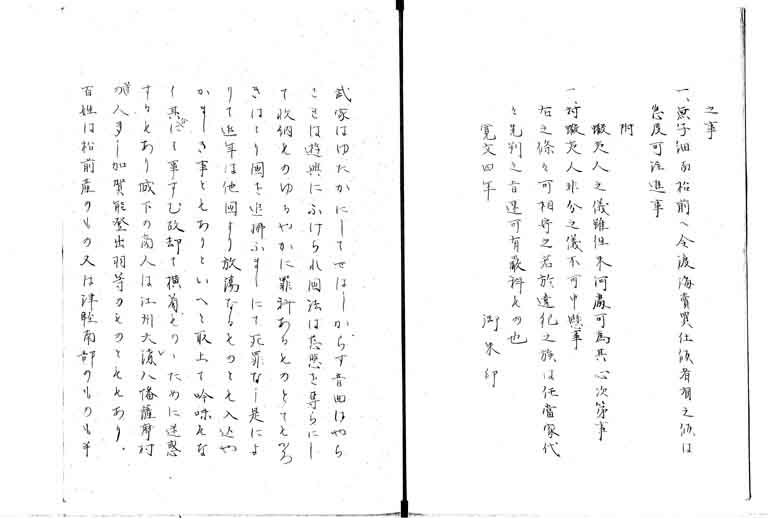 之事
一、無子細而松前へ令渡海賣買仕候者有之候は
急度可注進事
附
蝦夷人之儀雖往来何處可為其心次第事
一、対蝦夷人非分之儀不可申懸事
右之條々可相守之若於違犯之族は任當家代
々先判之旨速可有嚴科もの也
寛文四年
御朱印
武家はゆたかにしてせはしからす音曲はやら
ことは遊興にふけられ国法は慈悲を専らにし
て収納ものゆるやかに罪科あるものとても
きはより国を追拂ふましにて死罪なし是によ
りて近年は他国より放蕩なるものとも入込や
かましき事ともありといへと取上て吟味もな
く其して軍すむ故却て横着ものゝために迷惑
するもあり城下の商人は江州大濱八幡薩摩村
の人多し加賀能登出羽等のものともあり、
百姓は松前産のもの又は津軽南部のものも